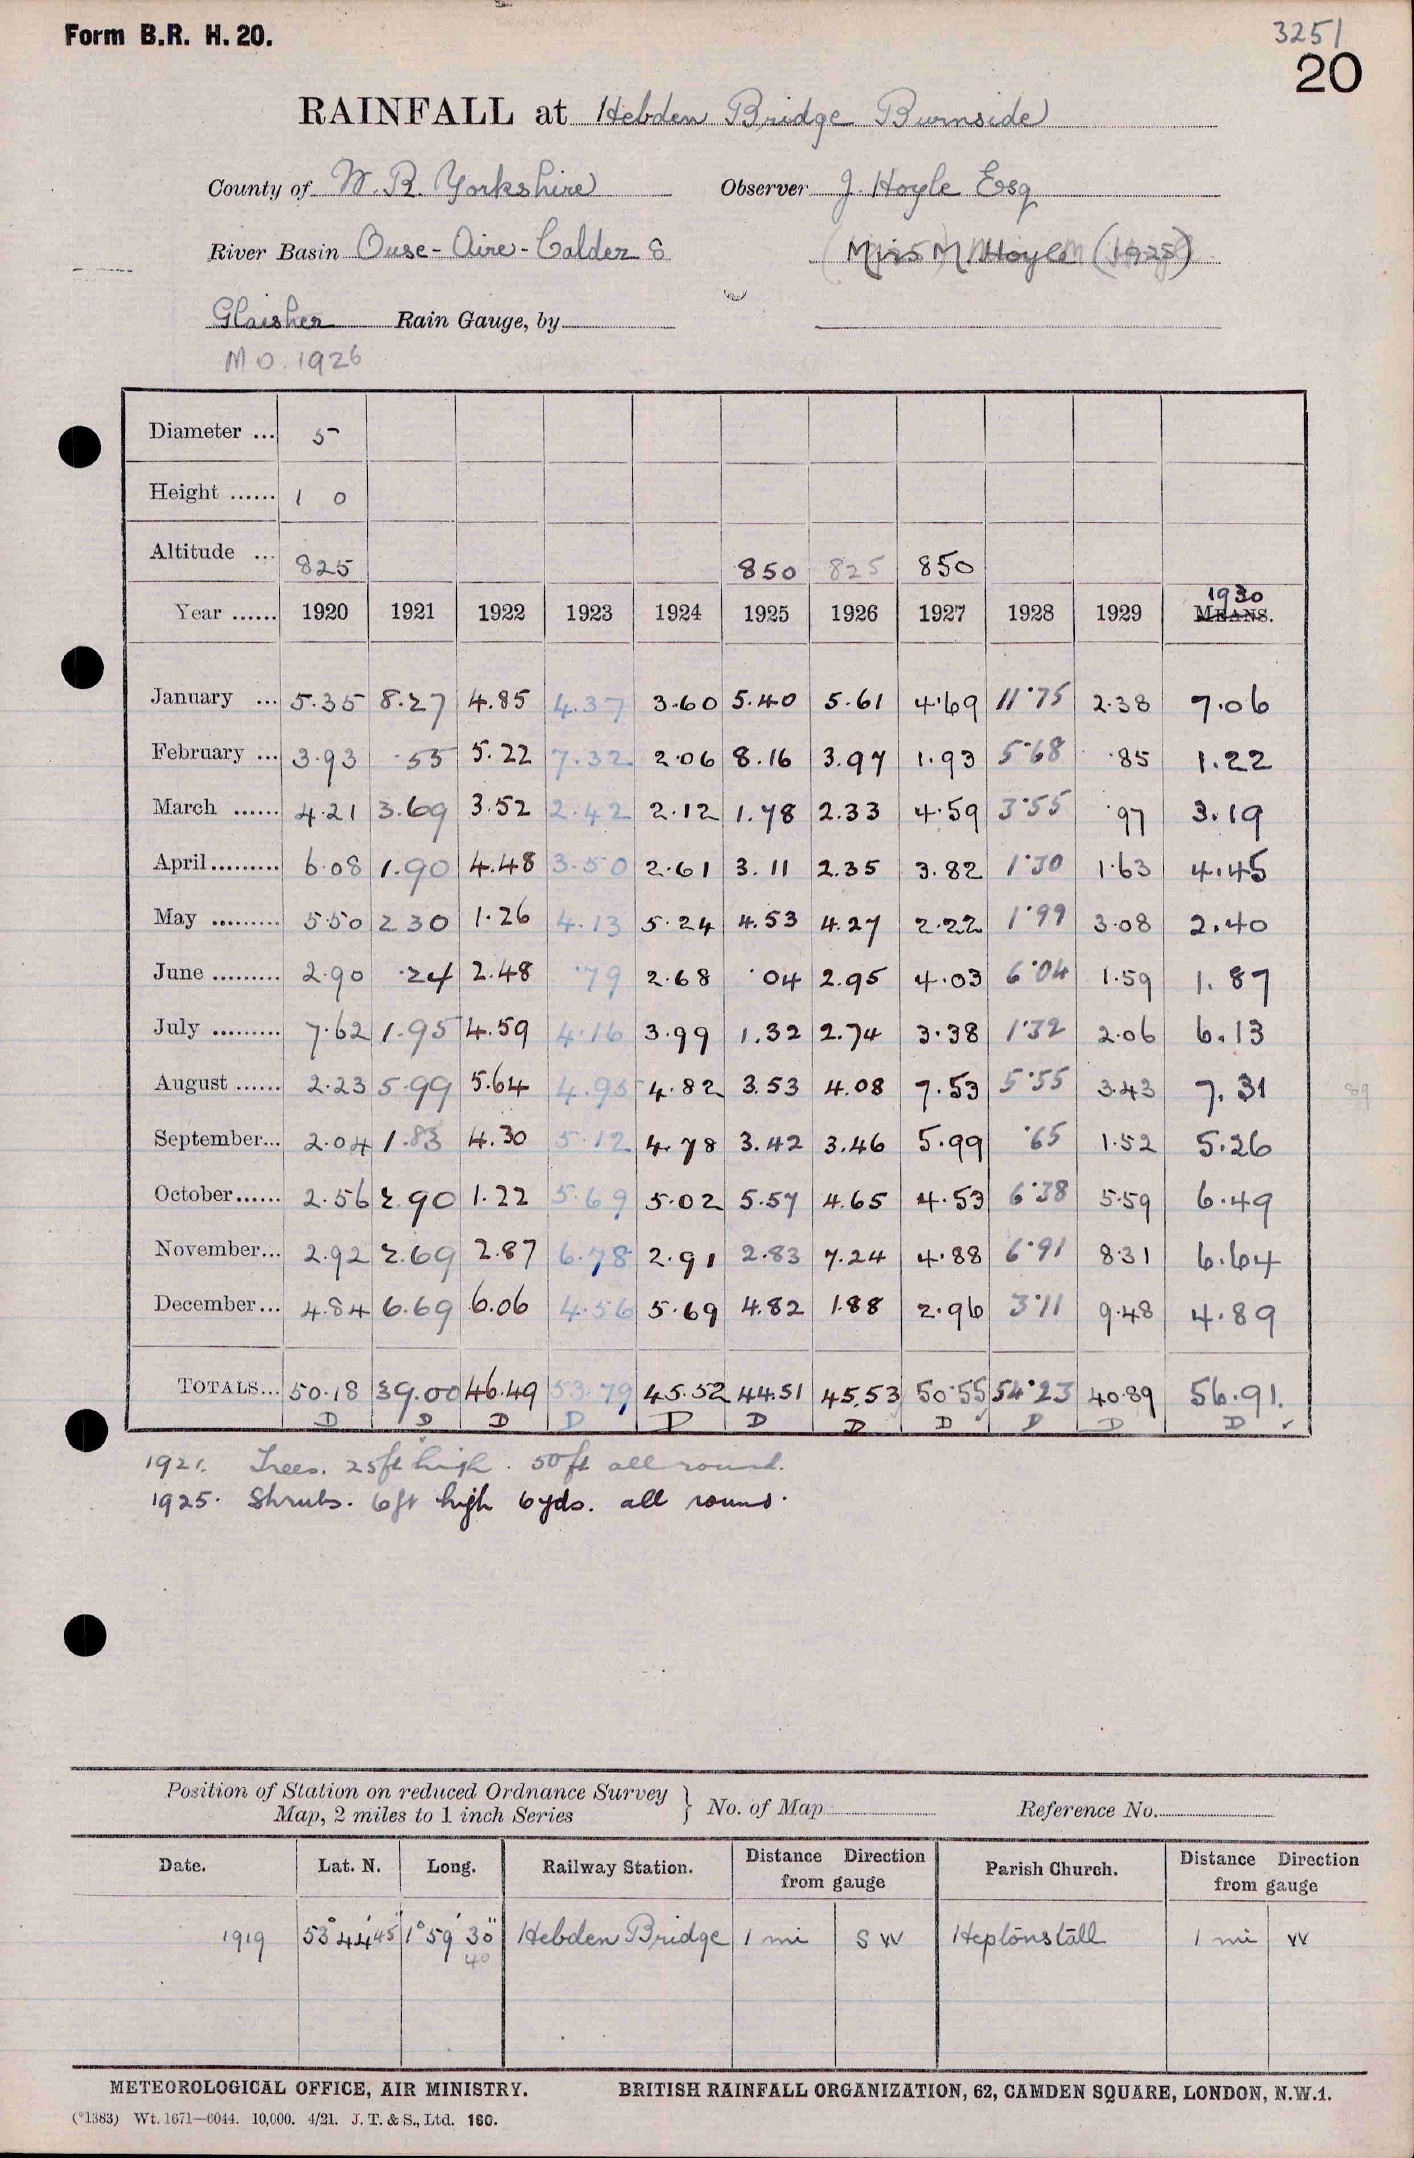 Form B.R. H. 20.
3251
20
RAINFALL at Hebden Bridge Burnside
County of W. R. Yorkshire Observer J. Hoyle Esq
River Basin Ouse - Aire - Calder 8 Miss M. Hoyle (1925)
Glaisher Rain Gauge, by
M O. 1926
Diameter ... 5
Height ...... 1 0
Altitude ... 825 850 825 850
Year ...... 1920 1921 1922 1923 1924 1925 1926 1927 1928 1929 1930 MEANS.
January ... 5.35 8.27 4.85 4.37 3.60 5.40 5.61 4.69 11.75 2.38 7.06
February ... 3.93 .55 5.22 7.32 2.06 8.16 3.97 1.93 5.68 .85 1.22
March ...... 4.21 3.69 3.52 2.42 2.12 1.78 2.33 4.59 3.55 .97 3.19
April ......... 6.08 1.90 4.48 3.50 2.61 3.11 2.35 3.82 1.30 1.63 4.45
May ......... 5.50 2 30 1.26 4.13 5.24 4.53 4.27 2.22 1.99 3.08 2.40
June ......... 2.90 .24 2.48 .79 2.68 .04 2.95 4.03 6.04 1.59 1.87
July ......... 7.62 1.95 4.59 4.16 3.99 1.32 2.74 3.38 1.32 2.06 6.13
August ...... 2.23 5.99 5.64 4.95 4.82 3.53 4.08 7.53 5.55 3.43 7.31 89
September... 2.04 1.83 4.30 5.12 4.78 3.42 3.46 5.99 .65 1.52 5.26
October...... 2.56 2.90 1.22 5.69 5.02 5.57 4.65 4.53 6.38 5.59 6.49
November... 2.92 2.69 2.87 6.78 2.91 2.83 7.24 4.88 6.91 8.31 6.64
December... 4.84 6.69 6.06 4.56 5.69 4.82 1.88 2.96 3.11 9.48 4.89
TOTALS... 50.18 39.00 46.49 53.79 45.52 44.51 45.53 50.55 54.23 40.89 56.91.
D D D D D D D D D D D
1921. Trees. 25ft high. 50ft all round.
1925. Shrubs. 6ft high 6yds. all round.
Position of Station on reduced Ordnance Survey Map, 2 miles to 1 inch Series } No. of Map Reference No.
Date. Lat. N. Long. Railway Station. Distance Direction from gauge Parish Church. Distance Direction from gauge
1919 53° 44' 45" 1° 59' 30" Hebden Bridge 1 mi S W Heptonstall 1 mi W
40
METEOROLOGICAL OFFICE, AIR MINISTRY. BRITISH RAINFALL ORGANIZATION, 62, CAMDEN SQUARE, LONDON, N.W.1.
(*1383) Wt. 1671—6044. 10,000. 4/21. J. T. & S., Ltd. 160.